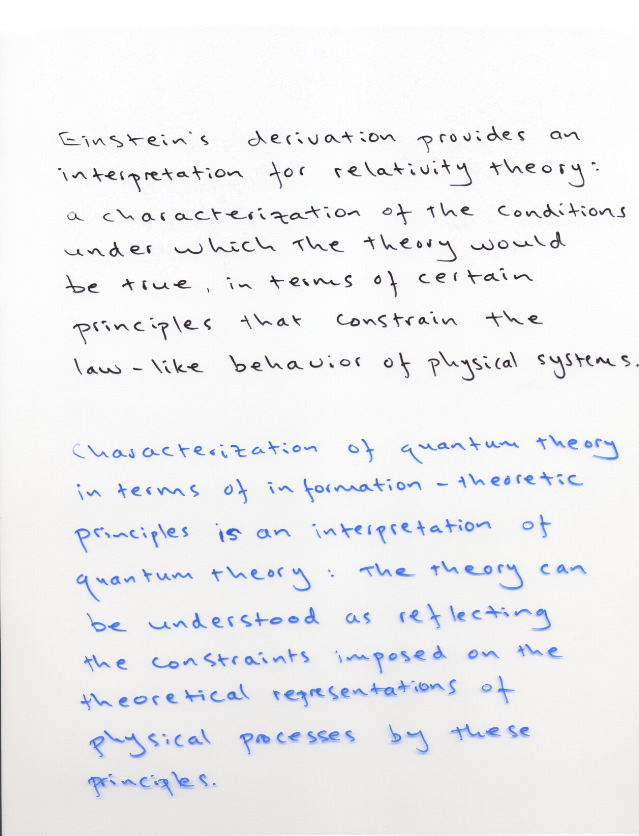 Einstein's derivation provides an
interpretation for relativity theory:
a characterization of the conditions
under which the theory would
be true, in terms of certain
principles that constrain the
law-like behavior of physical systems.
Characterization of quantum theory
in terms of information-theoretic
principles is an interpretation of
quantum theory: The theory can
be understood as reflecting
the constraints imposed on the
theoretical representations of
physical processes by these
principles.